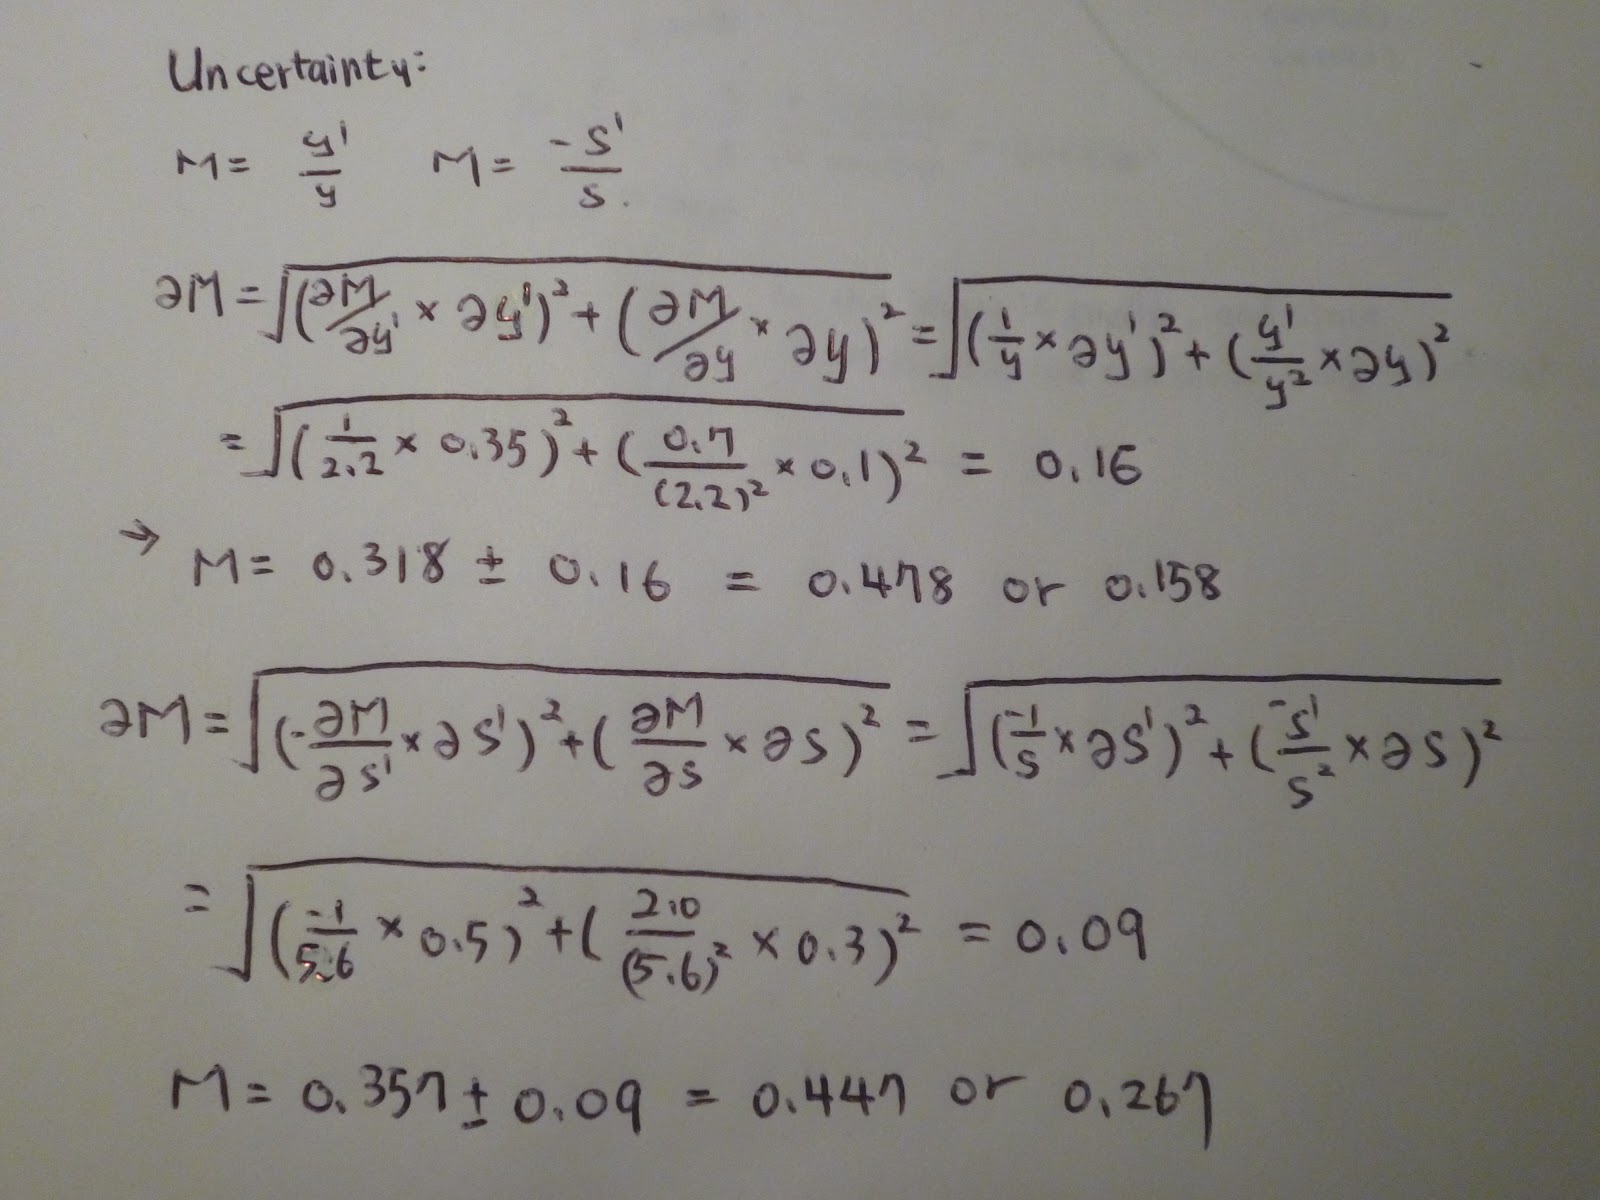 Uncertainty:
M = y'/y   M = -s'/s.
∂M = √((∂M/∂y' × ∂y')² + (∂M/∂y × ∂y)²) = √((1/y × ∂y')² + (y'/y² × ∂y)²)
= √((1/2.2 × 0.35)² + (0.7/(2.2)² × 0.1)² = 0.16
→ M = 0.318 ± 0.16 = 0.478 or 0.158
∂M = √((-∂M/∂s' × ∂s')² + (∂M/∂s × ∂s)²) = √((-1/s × ∂s')² + (-s'/s² × ∂s)²)
= √((-1/5.6 × 0.5)² + (2.0/(5.6)² × 0.3)² = 0.09
M = 0.357 ± 0.09 = 0.447 or 0.267